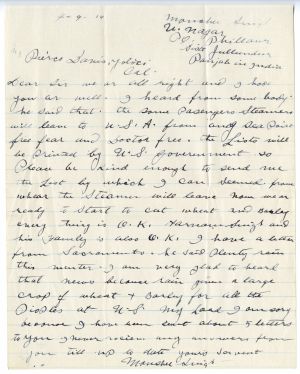 4-9-19
Monshee Singh
V. Nagar
P.O. Phillaur
Dist Jullundur
Punjab in India
My
Cal.
Dear Sir we are all right and I hope
you ar well. I heard from some body
he said that. the some Pasengers Steamers
will leave to U.S.A. from and See Poice
free fear and Doctor free. the Lists will
be Printed by U.S. government so
Please be kind enough to send me
the List by which I can seemed from
whear the Steamer will leave now wear
ready to start to cut wheat and Barley
every thing is O.K. Singh and
his Family is also O.K. I have a letter
from Sacramento. he said Plenty rain
this winter. I am very glad to hear
that news because rain given a large
crop of wheat + Barley for all the
Pioples at U.S. My Lord I am sory
becouse I have been sent about 5 letters
to you I never recieve any answers from
you till up to date yours servent
Monshee Singh